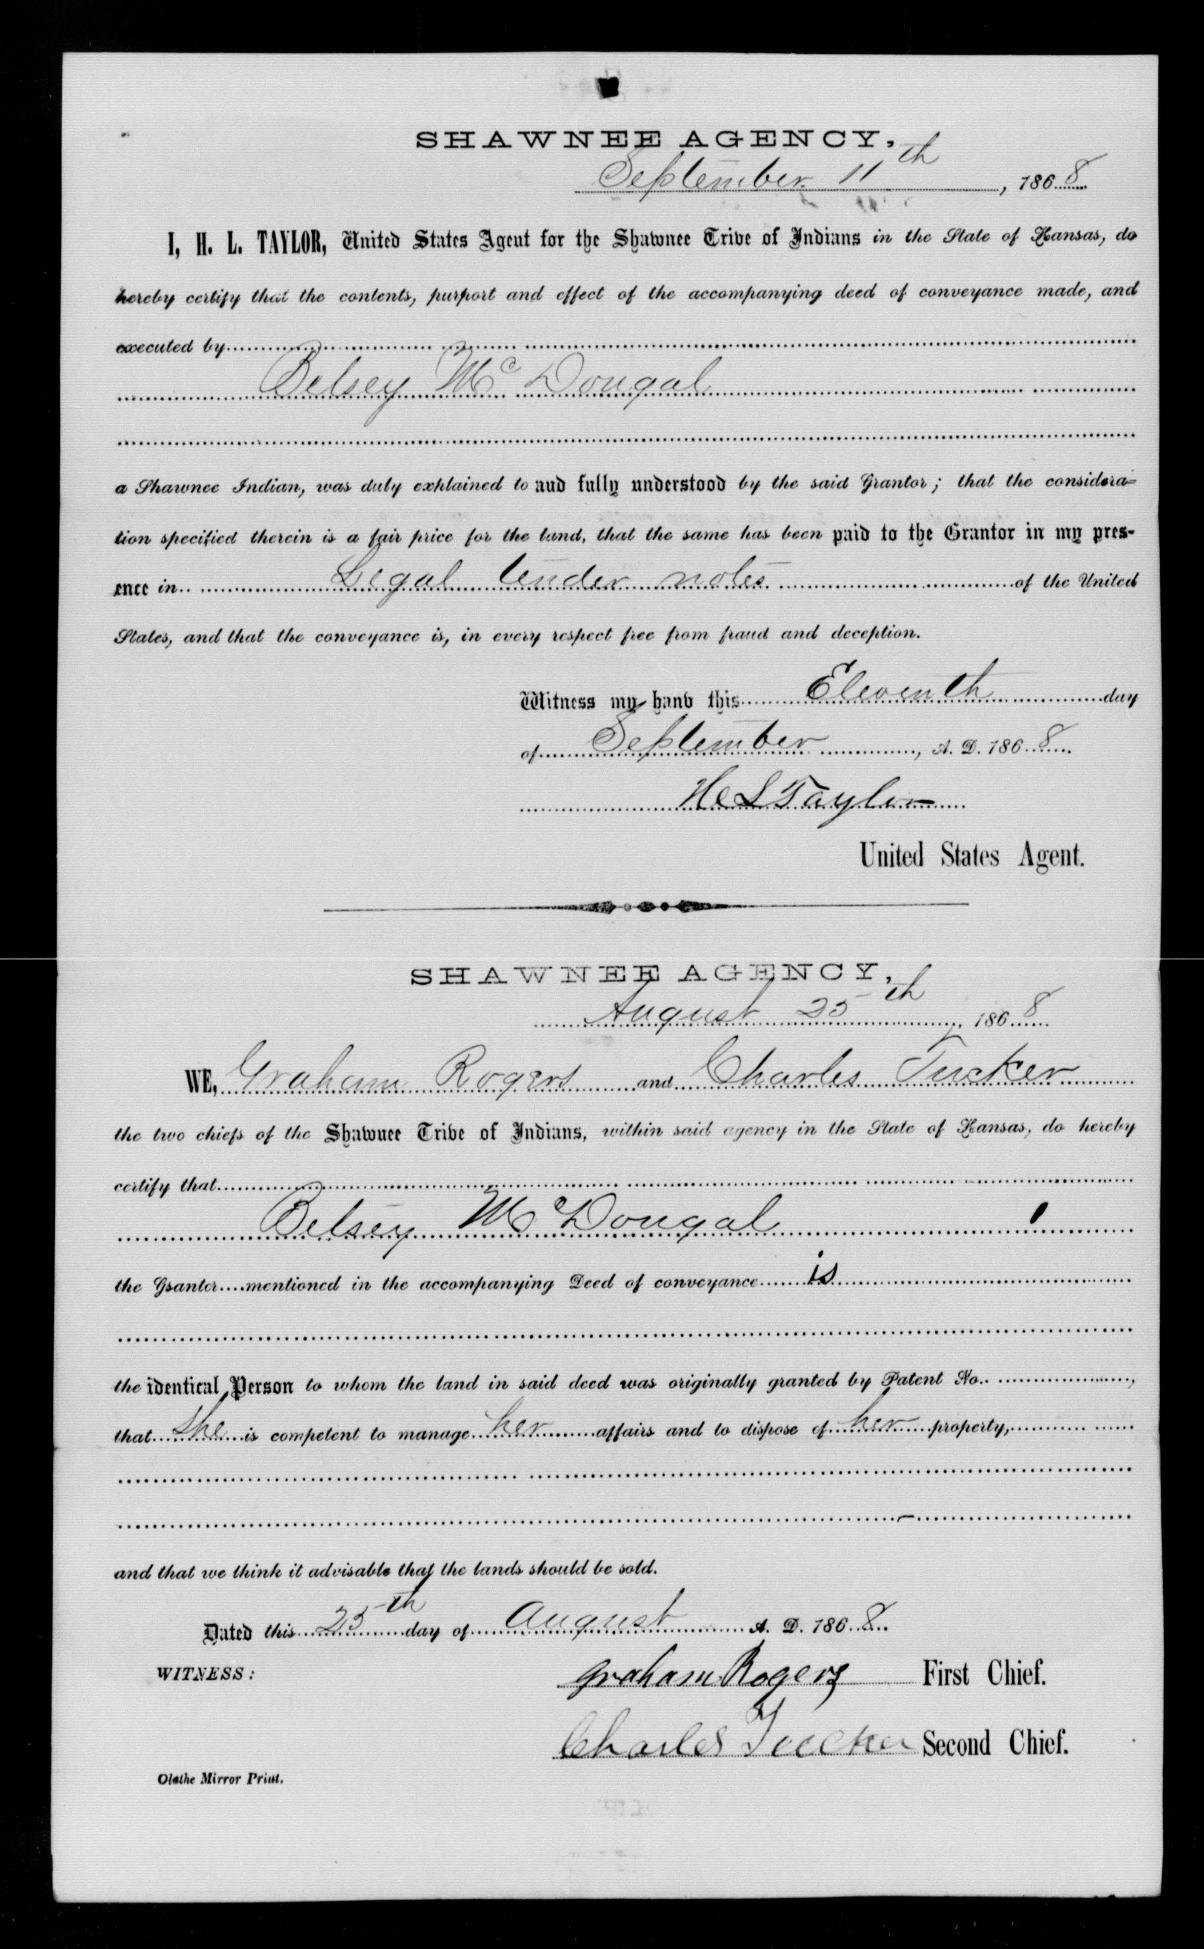 SHAWNEE AGENCY,
September 11th, 1868
I, H. L. TAYLOR, United States Agent for the Shawnee Tribe of Indians in the State of Kansas, do
hereby certify that the contents, purport and effect of the accompanying deed of conveyance made, and
executed by
Betsey McDougal
a Shawnee Indian, was duly explained to and fully understood by the said Grantor; that the considera=
tion specified therein is a fair price for the land, that the same has been paid to the Grantor in my pres-
ence in Legal tender notes of the United
States, and that the conveyance is, in every respect free from fraud and deception.
Witness my hand this Eleventh day
of September, A. D. 1868
H L Taylor
United States Agent.
SHAWNEE AGENCY,
August 25th, 1868
WE, Graham Rogers and Charles Tucker
the two chiefs of the Shawnee Tribe of Indians, within said agency in the State of Kansas, do hereby
certify that
Betsey McDougal
the Grantor mentioned in the accompanying Deed of conveyance is
the identical Person to whom the land in said deed was originally granted by Patent No. ,
that she is competent to manage her affairs and to dispose of her property,
and that we think it advisable that the lands should be sold.
Dated this 25th day of August A. D. 1868
WITNESS:
Graham Rogers First Chief.
Charles Tucker Second Chief.
Olathe Mirror Print.